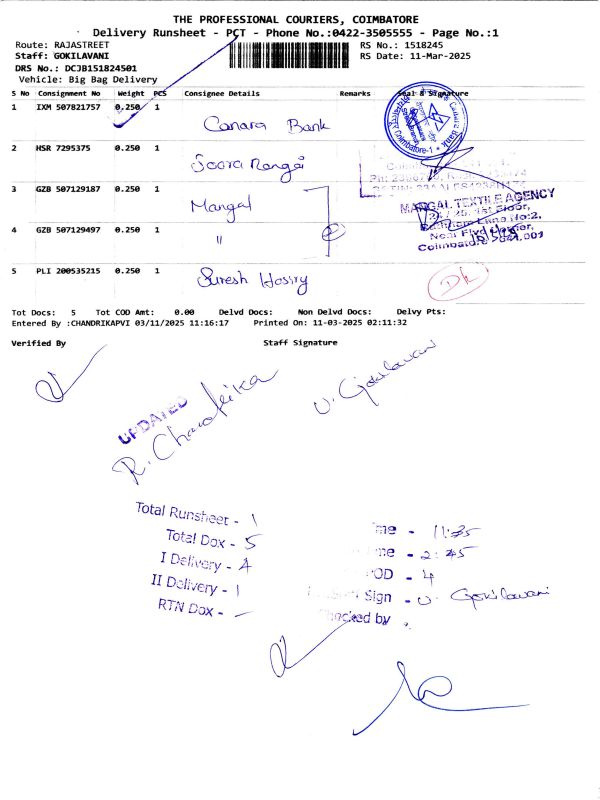 THE PROFESSIONAL COURIERS, COIMBATORE
Delivery Runsheet - PCT - Phone No.:0422-3505555 - Page No.:1
Route: RAJASTREET RS No.: 1518245
Staff: GOKILAVANI RS Date: 11-Mar-2025
DRS No.: DCJB151824501
Vehicle: Big Bag Delivery
S No Consignment No Weight PCS Consignee Details Remarks Seal & Signature
1 IXM 507821757 0.250 1
Canara Bank
Canara Bank
Coimbatore-1
2 HSR 7295375 0.250 1
Soora Mangai
3 GZB 507129187 0.250 1
Mangal
MANGAL TEXTILE AGENCY
1st Floor,
Lane No:2,
4 GZB 507129497 0.250 1
"
Coimbatore 641 001
5 PLI 200535215 0.250 1
Suresh Hosiry
Tot Docs: 5 Tot COD Amt: 0.00 Delvd Docs: Non Delvd Docs: Delvy Pts:
Entered By :CHANDRIKAPVI 03/11/2025 11:16:17 Printed On: 11-03-2025 02:11:32
Verified By Staff Signature
UPDATED
R. Chandrika
V. Gokilavani
Total Runsheet - 1
Total Dox - 5
I Delivery - 4
II Delivery - 1
RTN Dox - —
- 11:35
- 2:45
POD - 4
Sign - V. Gokilavani
Checked by